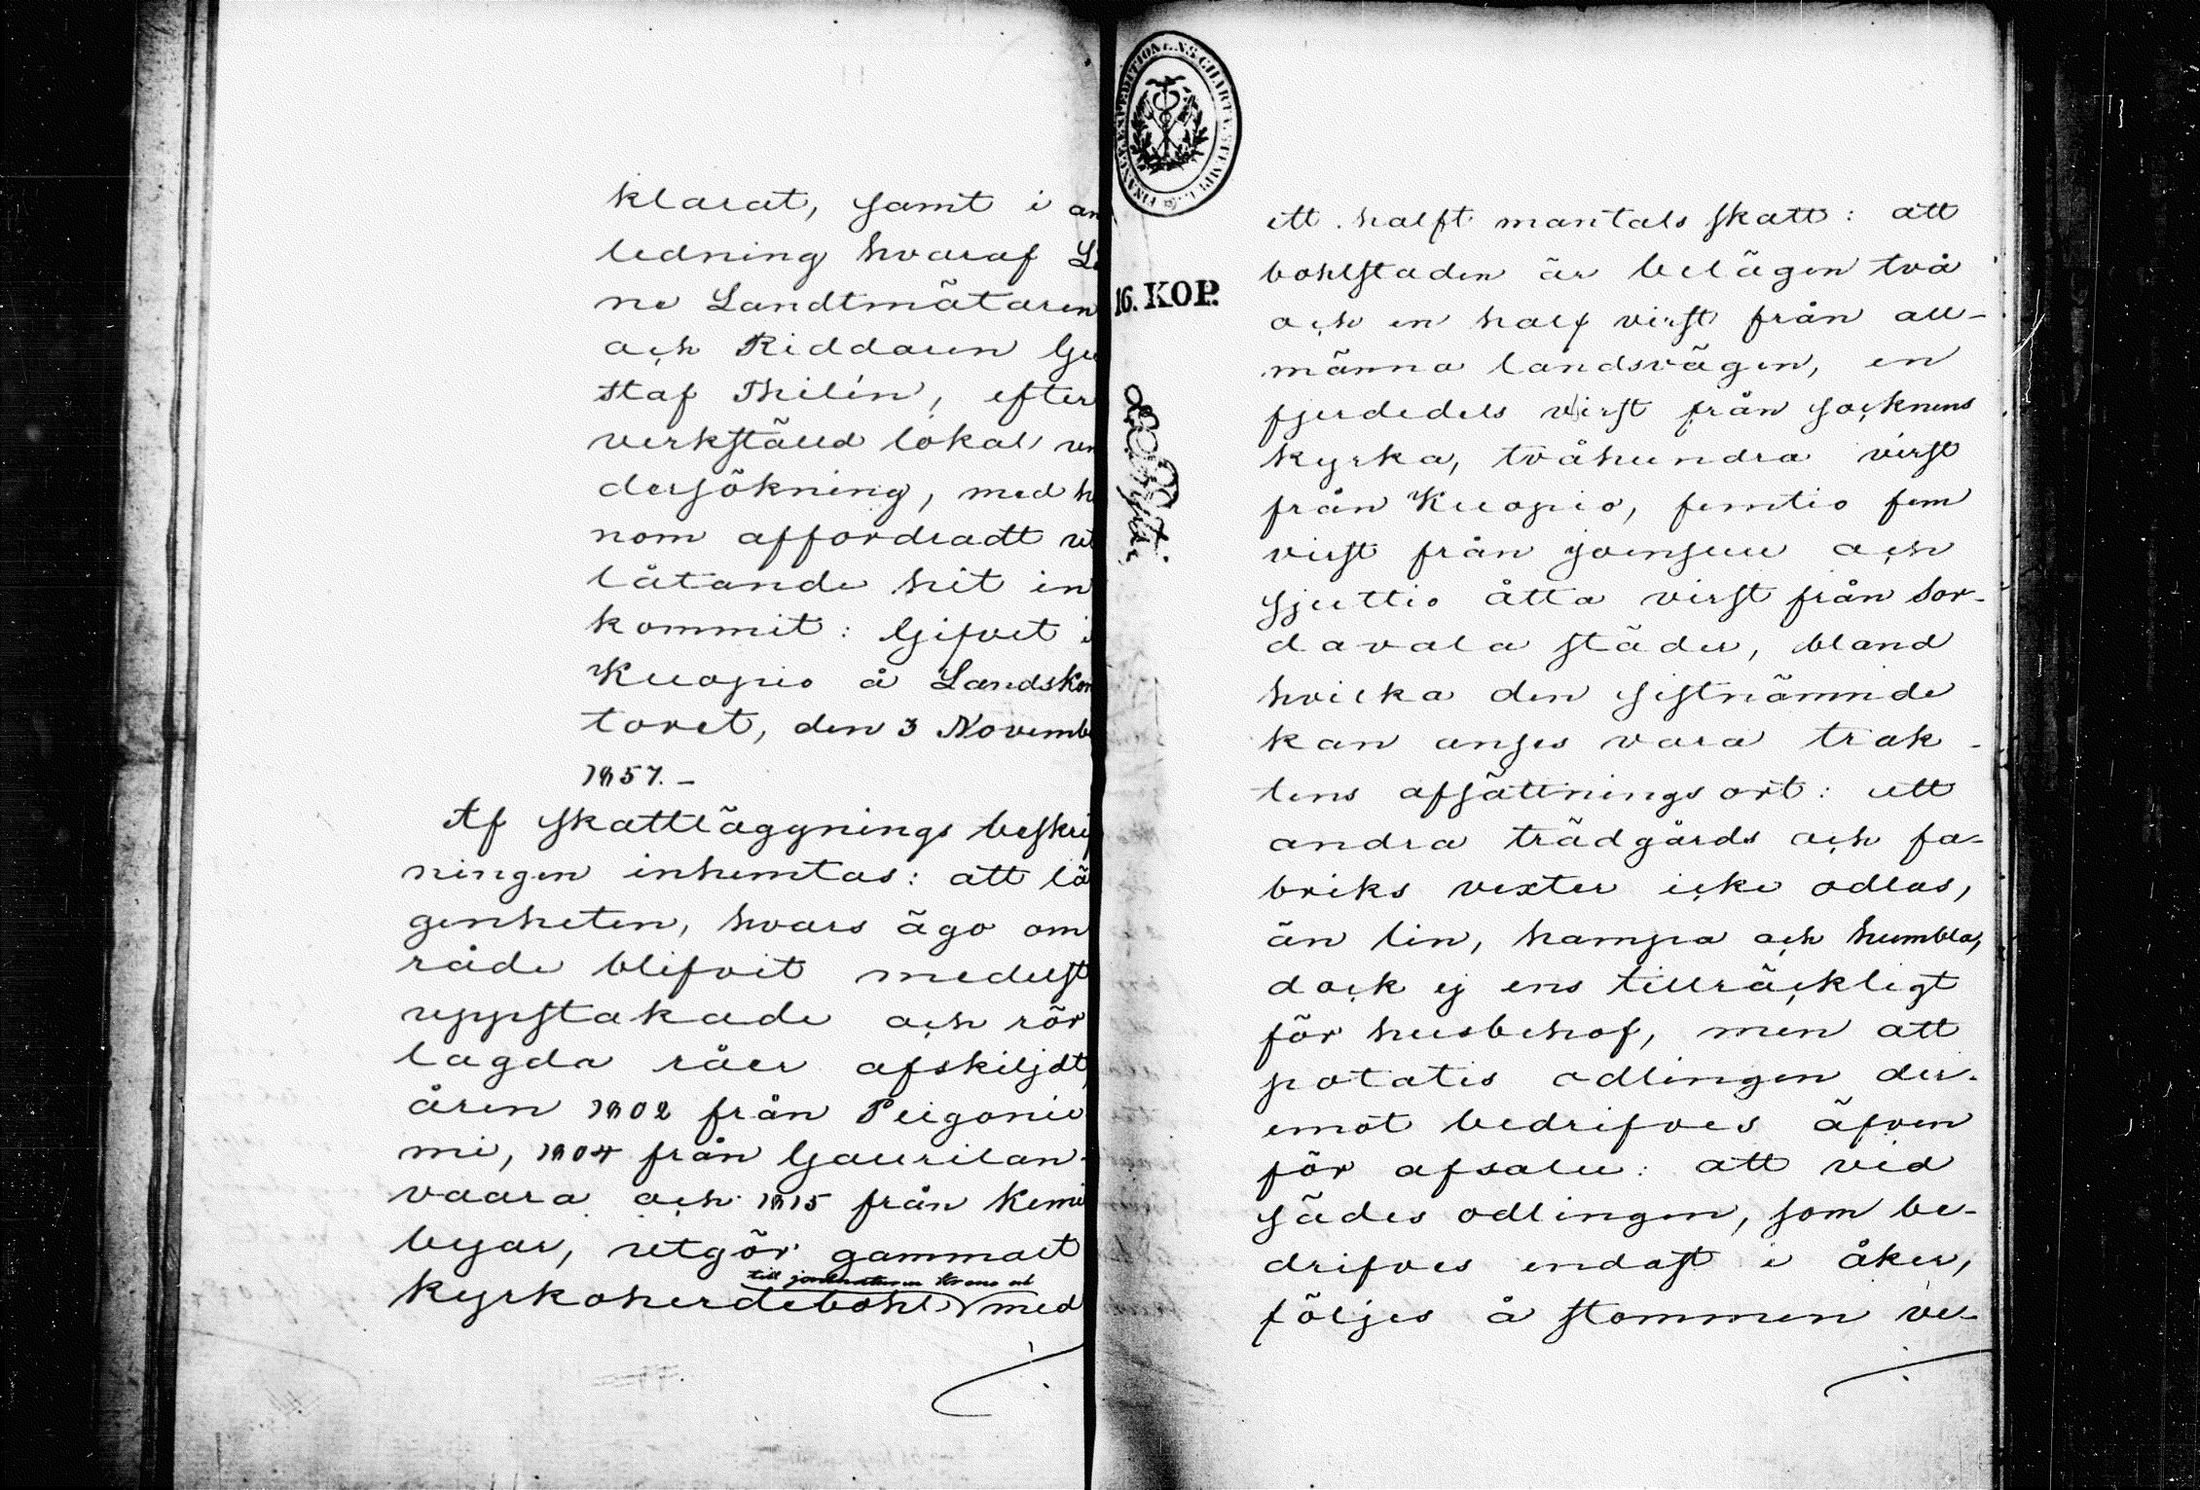 klarat, samt i an
ledning hvaraf Lä
ne Landtmätaren
och Riddaren Gu
staf Thilén, efter
verkställd lokal un
dersökning, med h
nom affordradt ut
låtande hit in
kommit: Gifvet i
Kuopio å Landskon
toret, den 3 Novembe
1857.–
Af skattläggnings beskrif
ningen inhemtas: att lä
genheten, hvars ägo om
råde blifvit medelst
uppstakade och rör
lagda råer afskiljdt,
åren 1802 från Puigonie
mi, 1804 från Gaurilan-
vaara och 1815 från Kemie
byar, utgör gammalt
till jordnaturen Krono och
kyrkoherdebohl med
FINANCE EXPEDITIONENS CHARTÆ STEMPEL
16. KOP.
ett halft mantals skatt: att
bohlstaden är belägen två
och en half virst från all-
männa landsvägen, en
fjerdedels virst från socknens
kyrka, tvåhundra virst
från Kuopio, femtio fem
virst från Joensuu och
sjuttio åtta virst från Sor-
davala städer, bland
hvilka den sistnämnde
kan anses vara trak-
tens afsättningsort: att
andra trädgårds och fa-
briks vexter icke odlas,
än lin, hampa och humbla,
dock ej ens tillräckligt
för husbehof, men att
potatis odlingen der-
emot bedrifves äfven
för afsalu: att vid
sädes odlingen, som be-
drifves endast i åker,
följes å stommen ve-